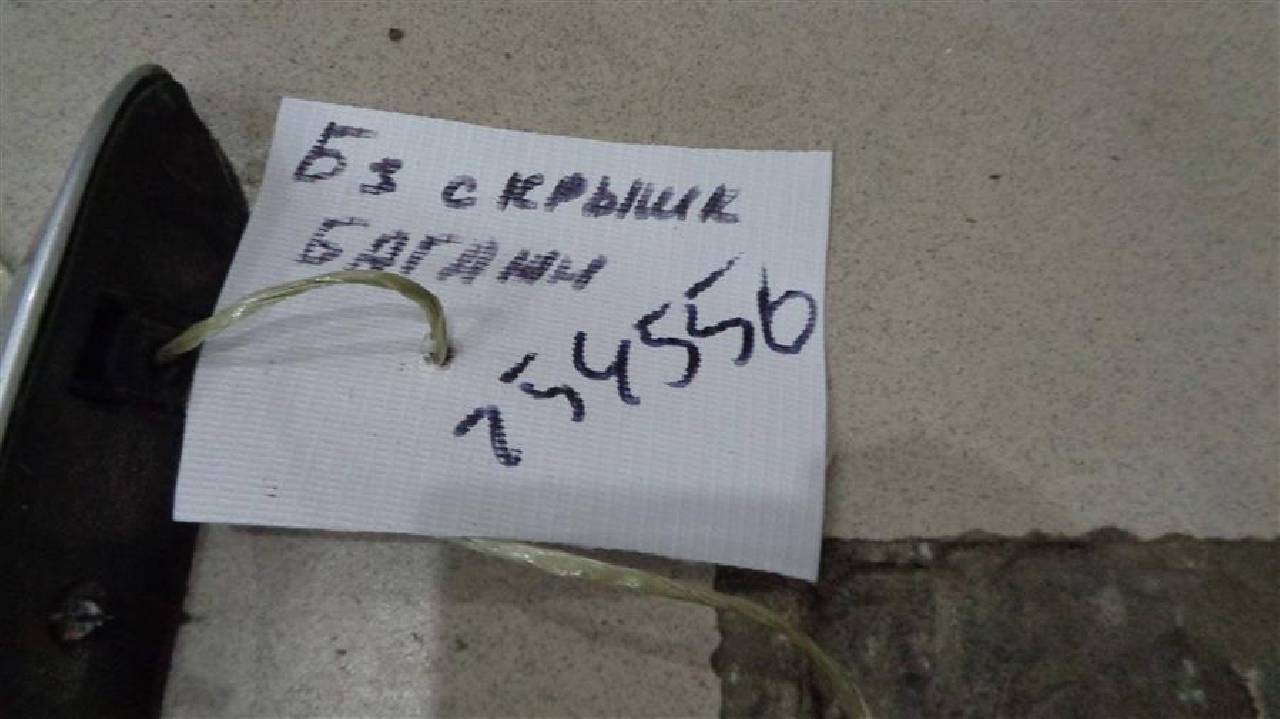 Бз с крышк
Багажн
154556